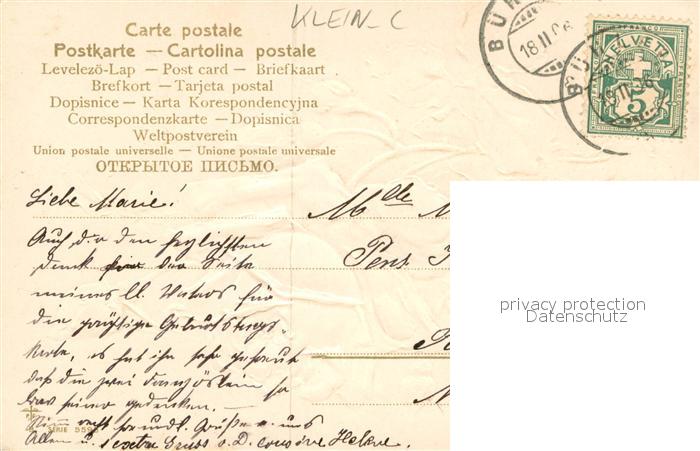 KLEIN_C
Carte postale
Postkarte — Cartolina postale
Levelező-Lap — Post card — Briefkaart
Brefkort — Tarjeta postal
Dopisnice — Karta Korespondencyjna
Correspondenzkarte — Dopisnica
Weltpostverein
Union postale universelle — Unione postale universale
ОТКРЫТОЕ ПИСЬМО.
18 II 06
HELVETIA
5
Liebe Marie!
Auch dir den herzlichsten
Dank für der Seite
meines ll. Vaters für
die prächtige Geburtstags-
karte, es hat ihn sehr gefreut
daß die zwei
seiner gedenken. —
Nimm recht freundl. Grüße v. uns
Allen u. 1 extra Gruss v. D. cousine
Mlle
Pens.
SERIE
privacy protection
Datenschutz